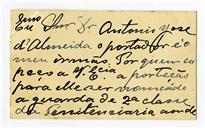 Exmo
Sr. Dr. Antonio José
d'Almeida o portador é o
meu irmão. Por quem eu
peço a V. Exia a proteção
para elle ser nomeado
a guarda de 2ª classe
da Penitenciaria aonde